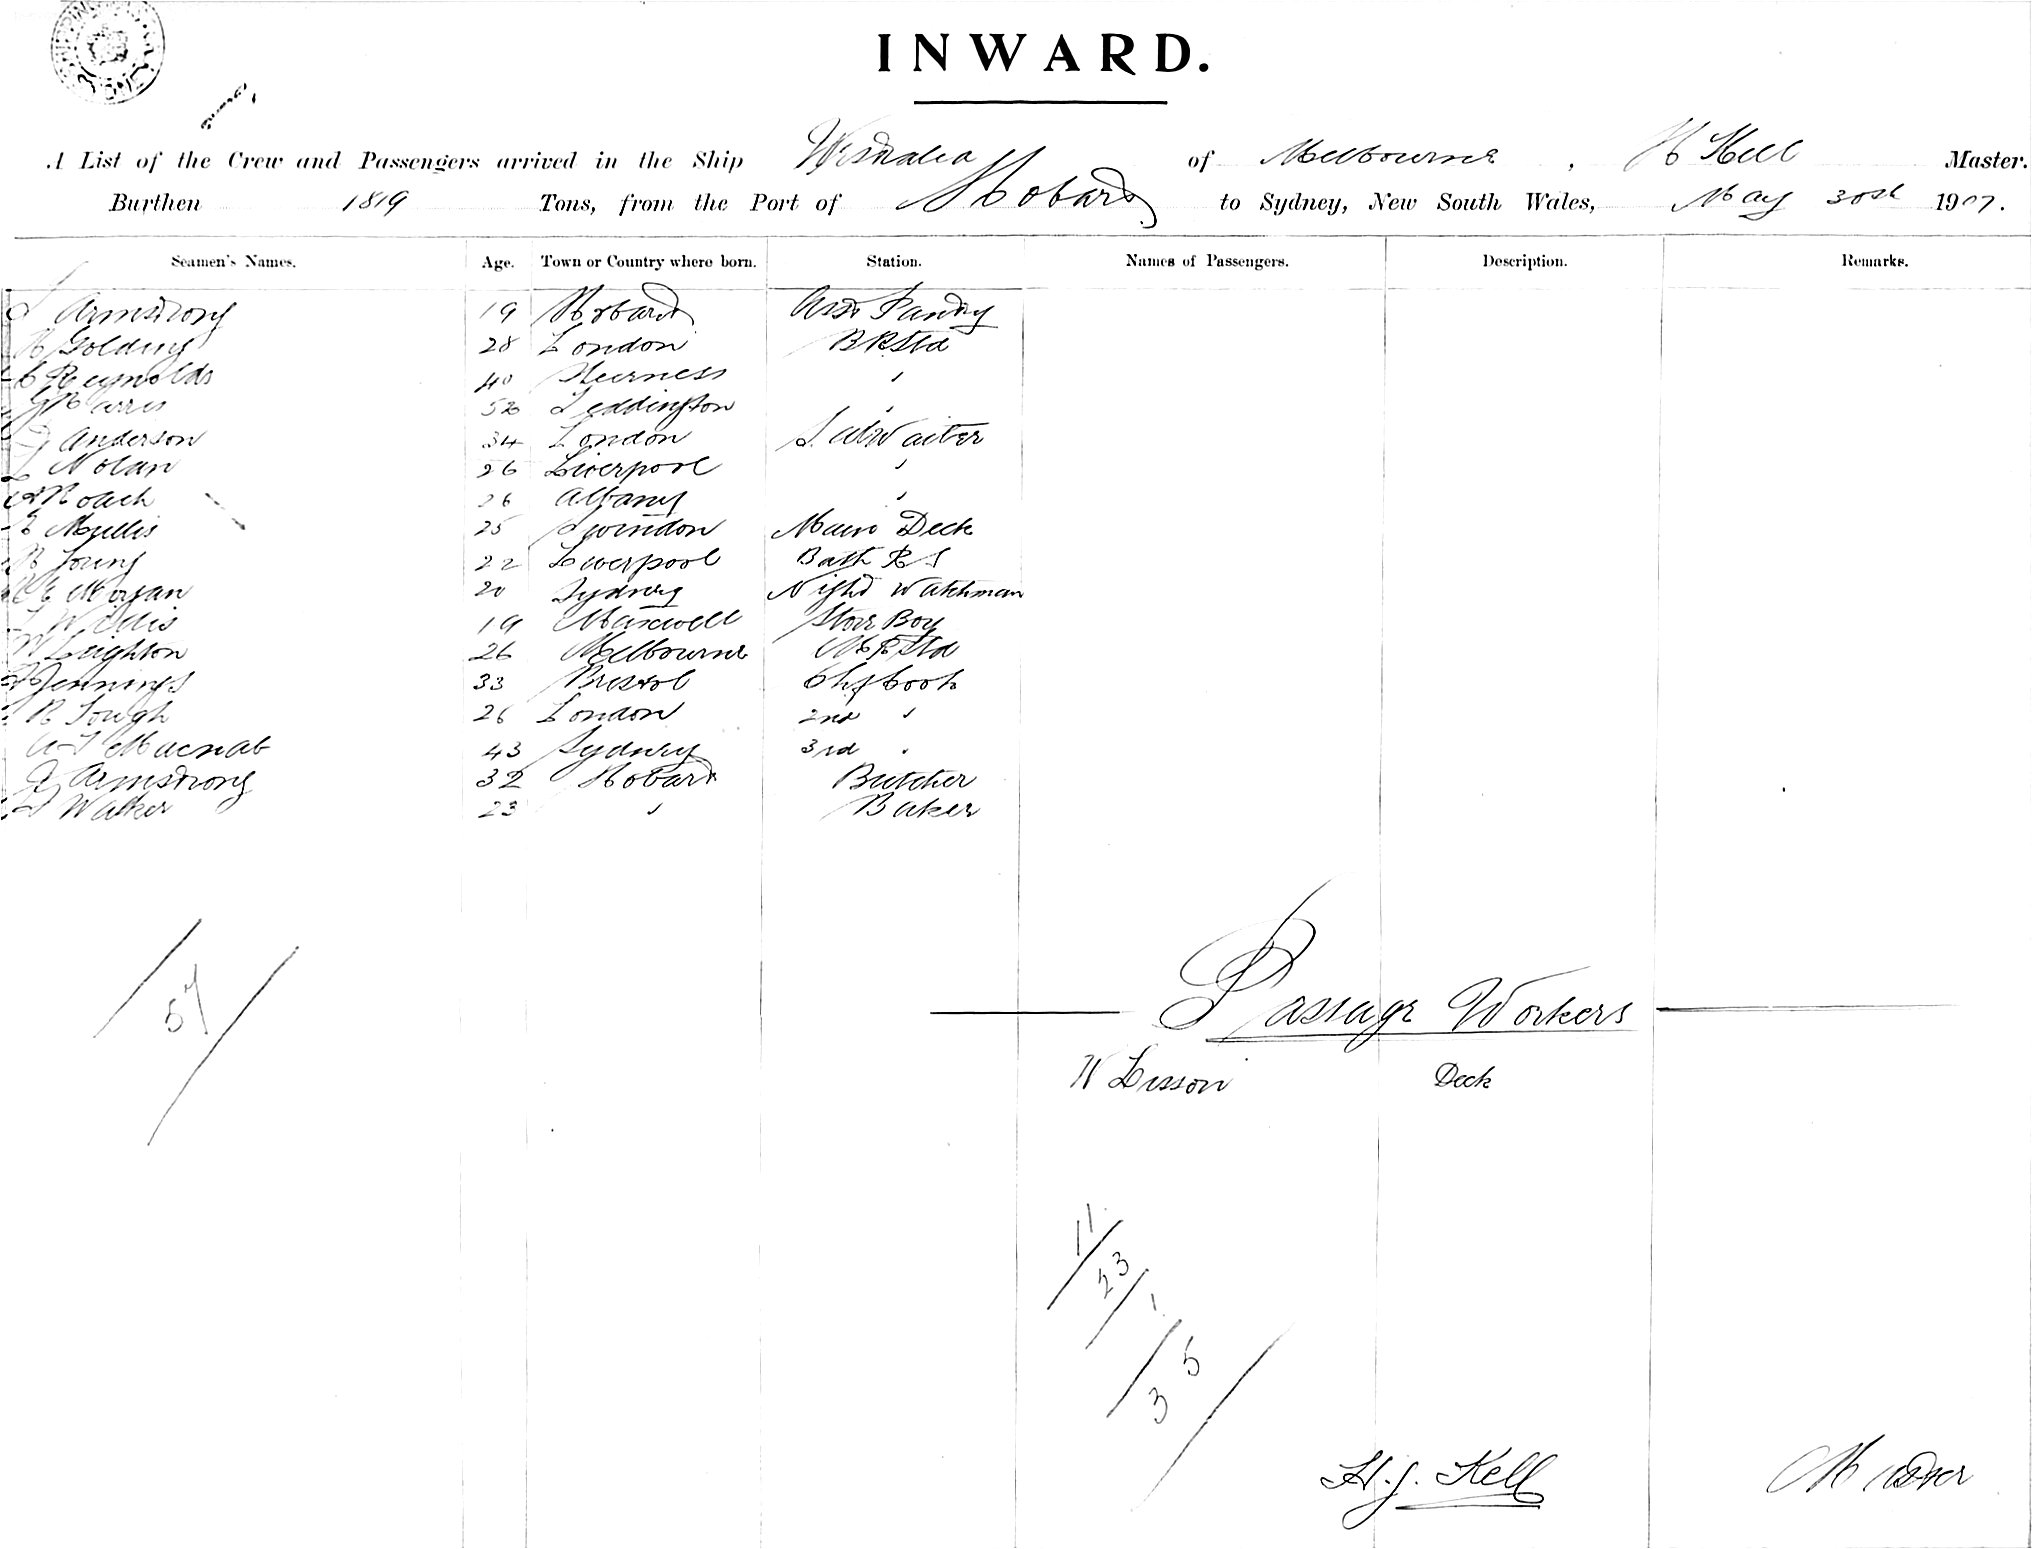 INWARD.
A List of the Crew and Passengers arrived in the Ship Westralia of Melbourne, H Kell Master.
Burthen 1819 Tons, from the Port of Hobart to Sydney, New South Wales, May 30th 1907.
Seamen's Names. Age. Town or Country where born. Station. Names of Passengers. Description. Remarks.
Armstrong 19 Hobart Asst Pantry
H Golding 28 London B R Std
C Reynolds 40 Sheerness "
G Harris 52 Teddington "
Anderson 34 London S. W Waiter
Nolan 26 Liverpool "
Roach 26 Albany "
Mullis 25 Swindon Main Deck
H Young 22 Liverpool Bath R S
Morgan 20 Sydney Night Watchman
Willis 19 Maxwell Store Boy
W Leighton 26 Melbourne M R Std
Jennings 33 Bristol Chf Cook
R Tough 26 London 2nd "
Macnab 43 Sydney 3rd "
Armstrong 32 Hobart Butcher
Walker 23 " Baker
57
Passage Workers
W Lisson Deck
11
23
1
35
H.J. Kell Master